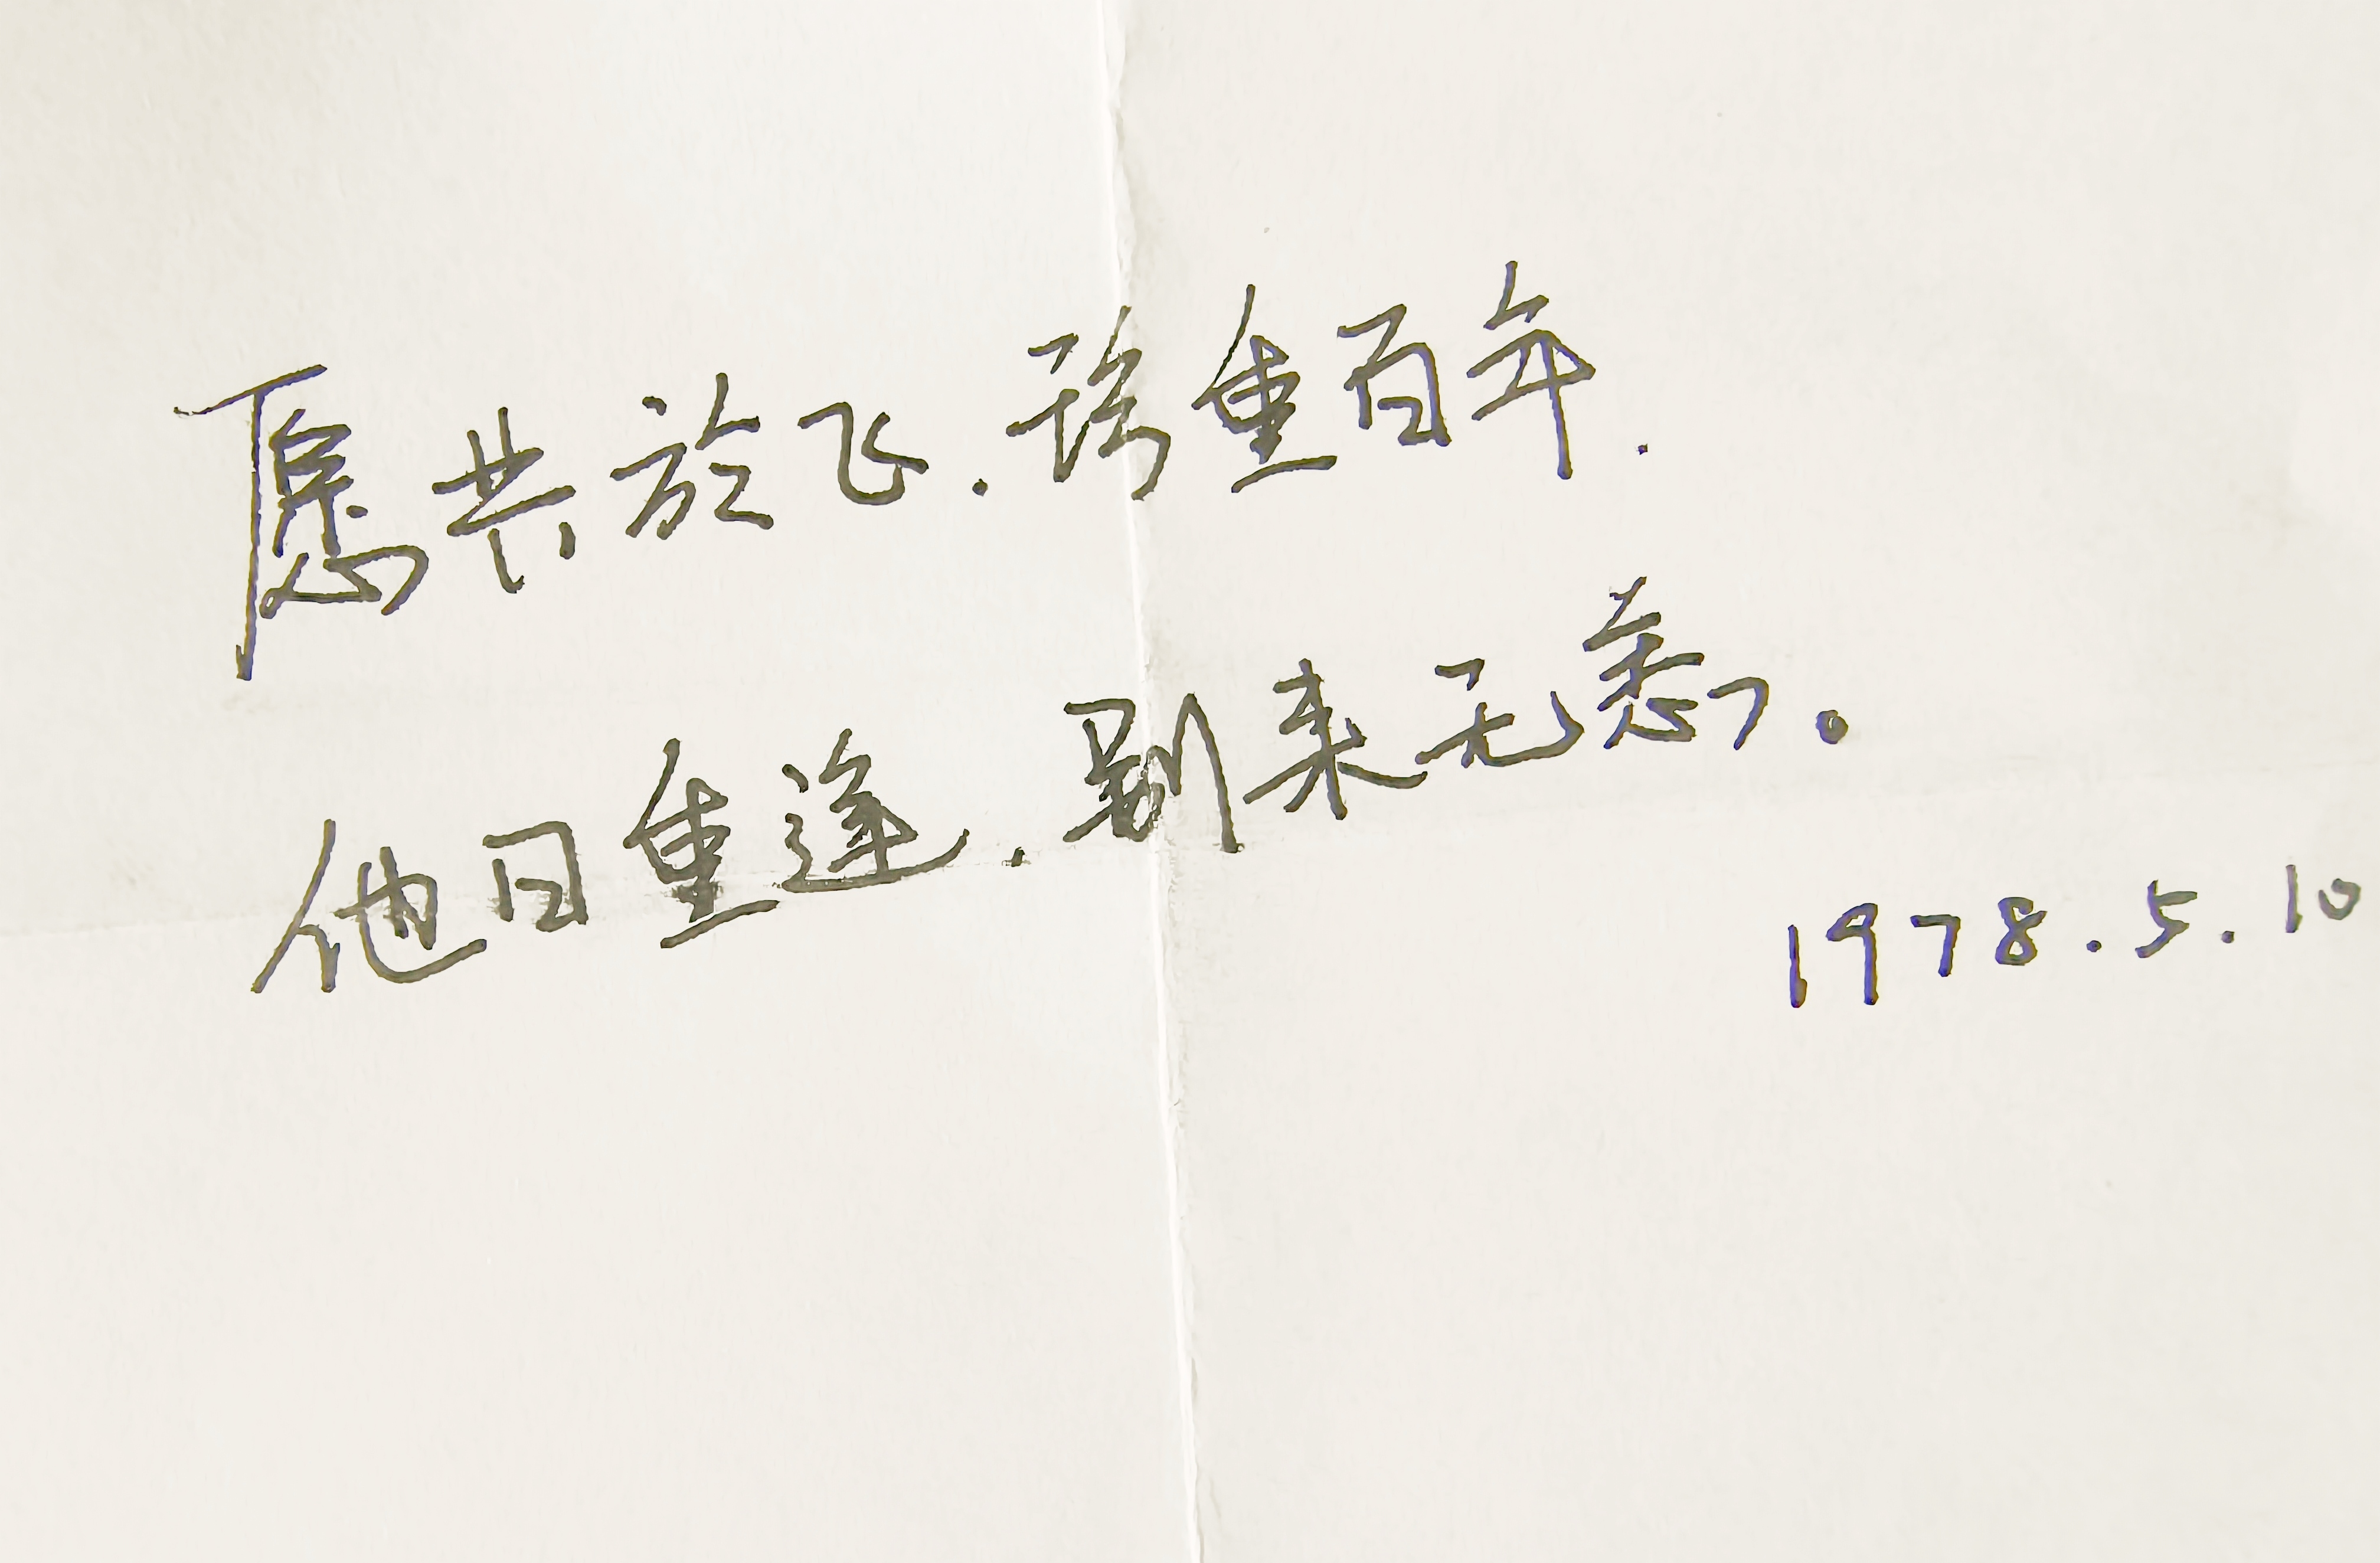 愿共於飞.珍重百年.
他日重逢.别来无恙。
1978.5.10